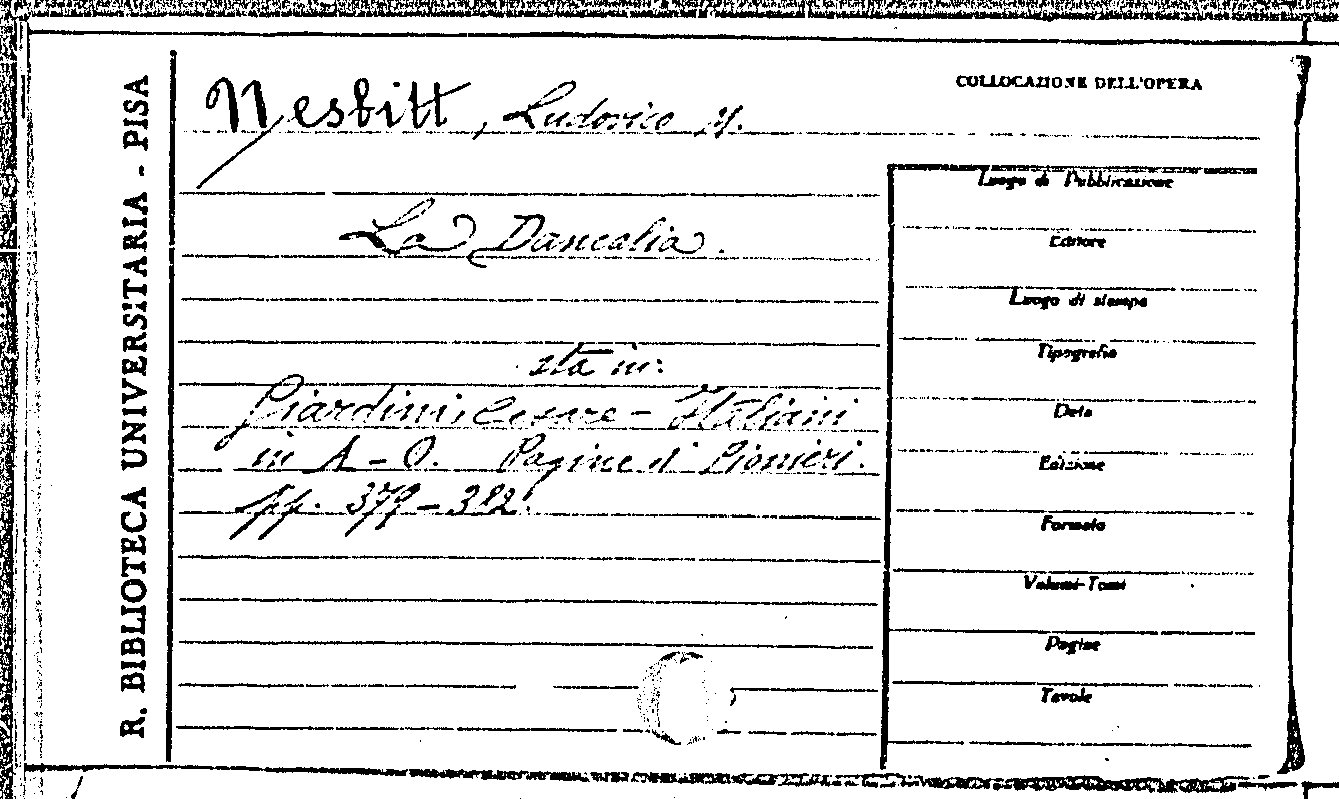 R. BIBLIOTECA UNIVERSITARIA - PISA
Nesbitt, Ludovico M.
COLLOCAZIONE DELL'OPERA
La Dancalia.
sta in:
Giardini, Cesare - Italiani
in A - O. Pagine di Pionieri.
pp. 379 - 382.
Luogo di Pubblicazione
Editore
Luogo di stampa
Tipografia
Data
Edizione
Formato
Volumi-Tomi
Pagine
Tavole